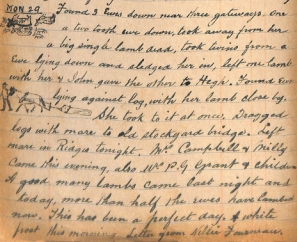 MON 29. Found 3 Ewes down near three gateways. One
a two tooth ewe down, took away from her
a big single lamb dead, took twins from a
Ewe lying down and sledged her in, left one lamb
with her & John gave the other to Hegà. Found Ewe
lying against log, with her lamb close by.
She took to it at once. Dragged
logs with mare to old stockyard bridge. Left
mare in Ridges tonight. Mrs Campbell & Milly
came this evening, also Mrs P.G. Grant & children
A good many lambs came last night and
today, more than half the ewes have lambed
now. This has been a perfect day. A white
frost this morning. Letter from